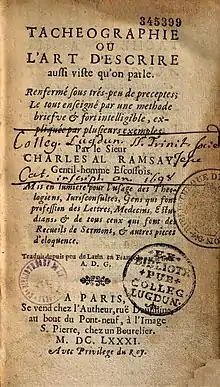 345399
TACHEOGRAPHIE
OU
L'ART D'ESCRIRE
aussi viste qu'on parle.
Renfermé sous trés-peu de preceptes;
Le tout enseigné par une methode
briefve & fort intelligible, ex-
pliquée par plusieurs exemples.
Colleg. Lugdun. SS. Trinit.
Par le Sieur
CHARLES AL. RAMSAY
Gentil-homme Escossois.
Cat. inscript. an 1698
Mis en lumiere pour l'usage des Theo-
logiens, Jurisconsultes, Gens qui font
profession des Lettres, Medecins, E-
studians & de tous ceux qui font des
Recueils de Sermons, & autres pieces
d'eloquence.
Traduit depuis peu de Latin en François
A. D. G.
BIBLIOTH
PUB
COLLEG
LUGDUN.
A PARIS,
Se vend chez l'Autheur, ruë Dauphine
au bout du Pont-neuf, à l'Image
S. Pierre, chez un Bourelier.
M. DC. LXXXI.
Avec Privilege du Roy.